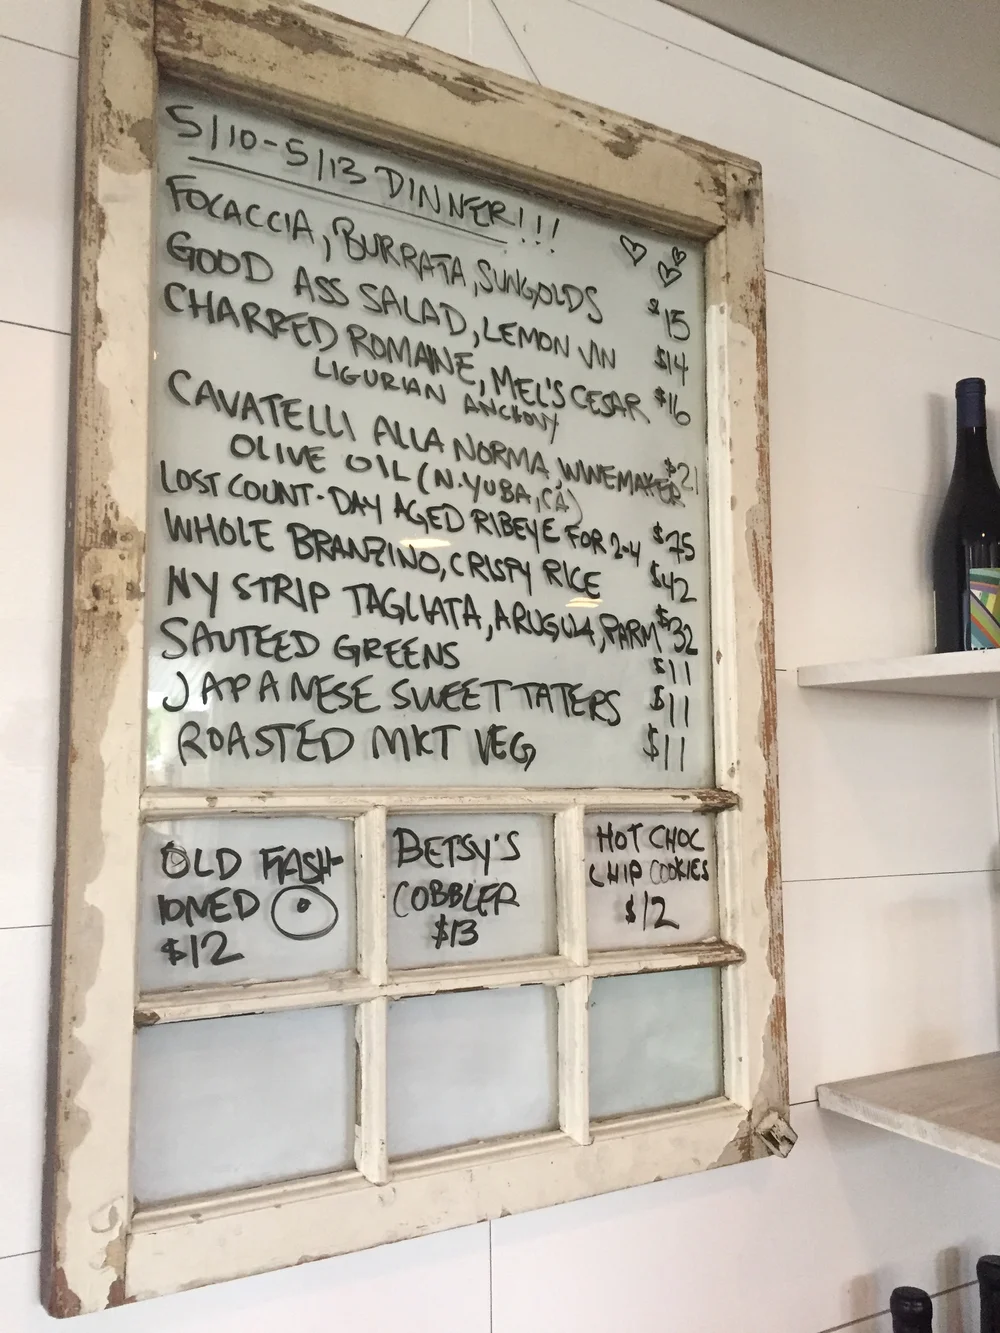 5/10-5/13 DINNER!!!
FOCACCIA, BURRATA, SUNGOLDS $15
GOOD ASS SALAD, LEMON VIN $14
CHARRED ROMAINE, MEL'S CESAR $16
LIGURIAN ANCHOVY
CAVATELLI ALLA NORMA, WINEMAKER $21
OLIVE OIL (N. YUBA, CA)
LOST COUNT-DAY AGED RIBEYE FOR 2-4 $75
WHOLE BRANZINO, CRISPY RICE $42
NY STRIP TAGLIATA, ARUGULA, PARM $32
SAUTEED GREENS $11
JAPANESE SWEET TATERS $11
ROASTED MKT VEG $11
OLD FASH-
IONED
$12
BETSY'S
COBBLER
$13
HOT CHOC
CHIP COOKIES
$12